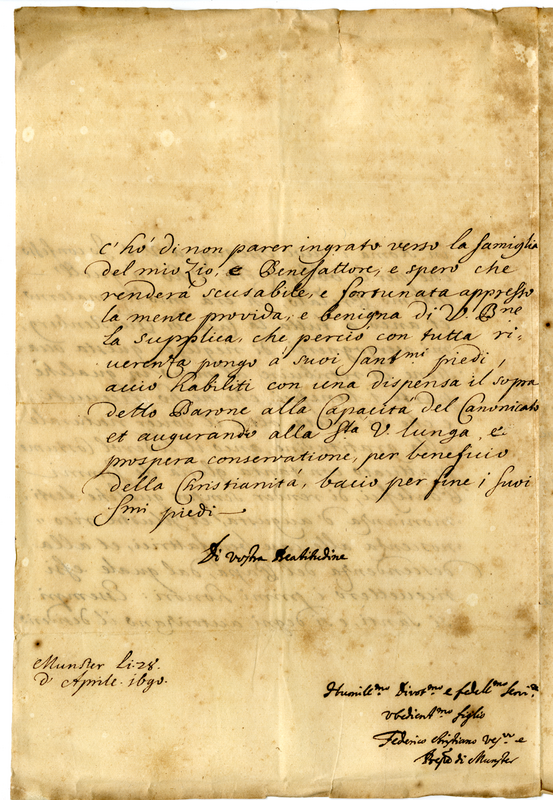 c' hó di non parer ingrato verso la famiglia
del mio Zio, e Benefattore, e spero che
renderá scusabile, e fortunata appresso
la mente provida, e benigna di V. Bne
la supplica, che perció con tutta ri-
uerenza pongo á suoi Santmi piedi,
acció habiliti con una dispensa il sopra
detto Barone alla Capacitá del Canonicato
et augurando alla Sta V. lunga, é
prospera conservatione, per beneficio
della Christianitá, bacio per fine i suoi
Smi piedi
Di vostra Beatitudine
Munster li 28.
d' Aprile. 1690.
Humillmo Divotmo e fedelmo
vbedientmo figlio
Federico Christiano e
di Munster